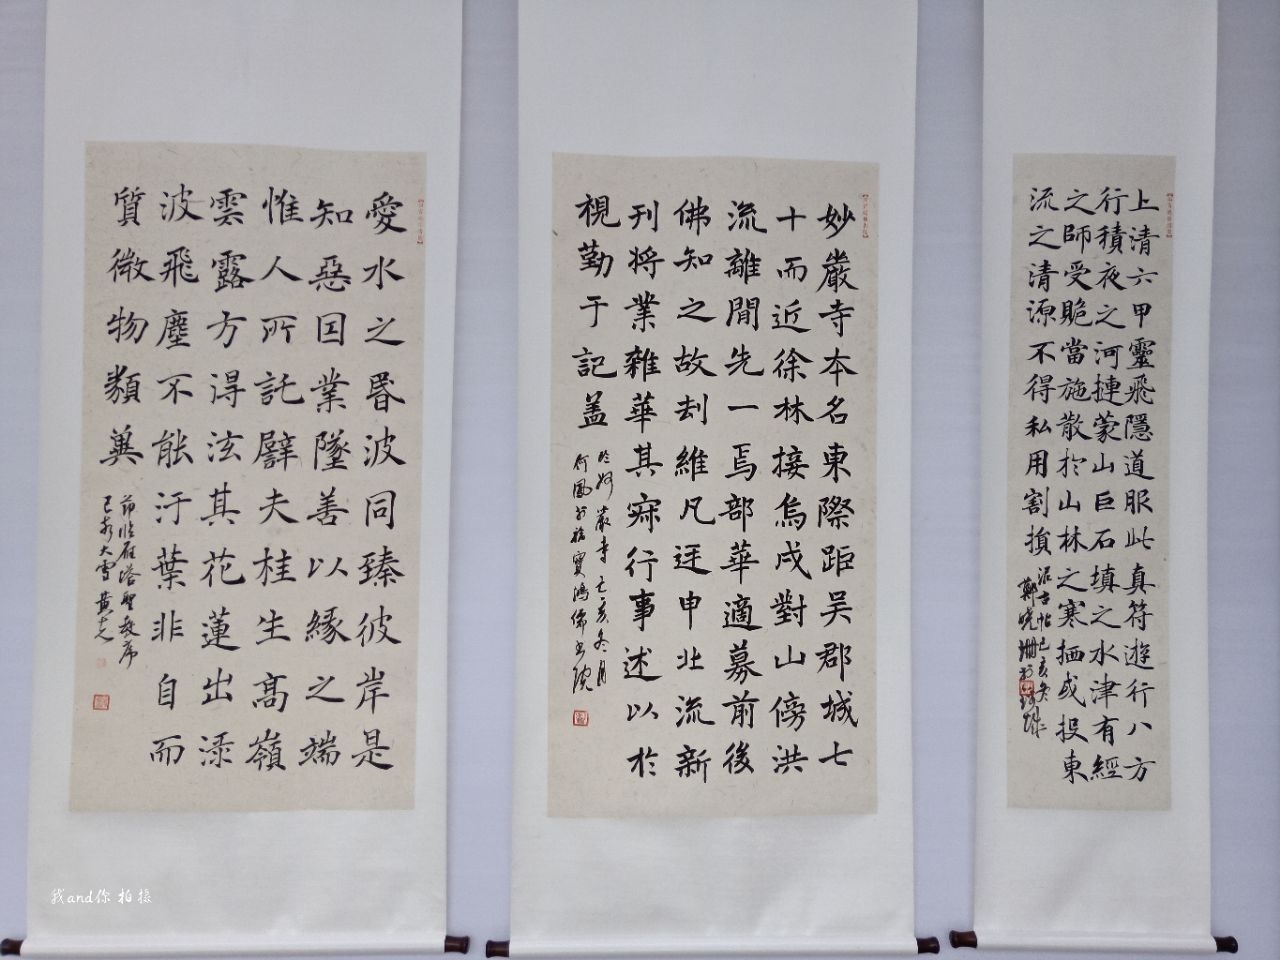 上清六甲靈飛隱道服此真符遊行八方
行積夜之河摙蒙山巨石填之水津有經
之師受貺當施散於山林之寒栖或投東
流之清源不得私用割損
妙嚴寺本名東際距吳郡城七
十而近徐林接烏戍對山傍洪
流離間先一焉部華適募前後
佛知之故刦維凡申北流新
刊将業雜華其行事述以於
視勤于記盖
臨妙嚴寺己亥冬月
愛水之昬波同臻彼岸是
知惡因業墜善以緣之端
惟人所託譬夫桂生高嶺
雲露方得泫其花蓮出淥
波飛塵不能汙葉非自而
質微物類莫
節临雁塔聖教序
己亥大雪黄
我and你 拍摄